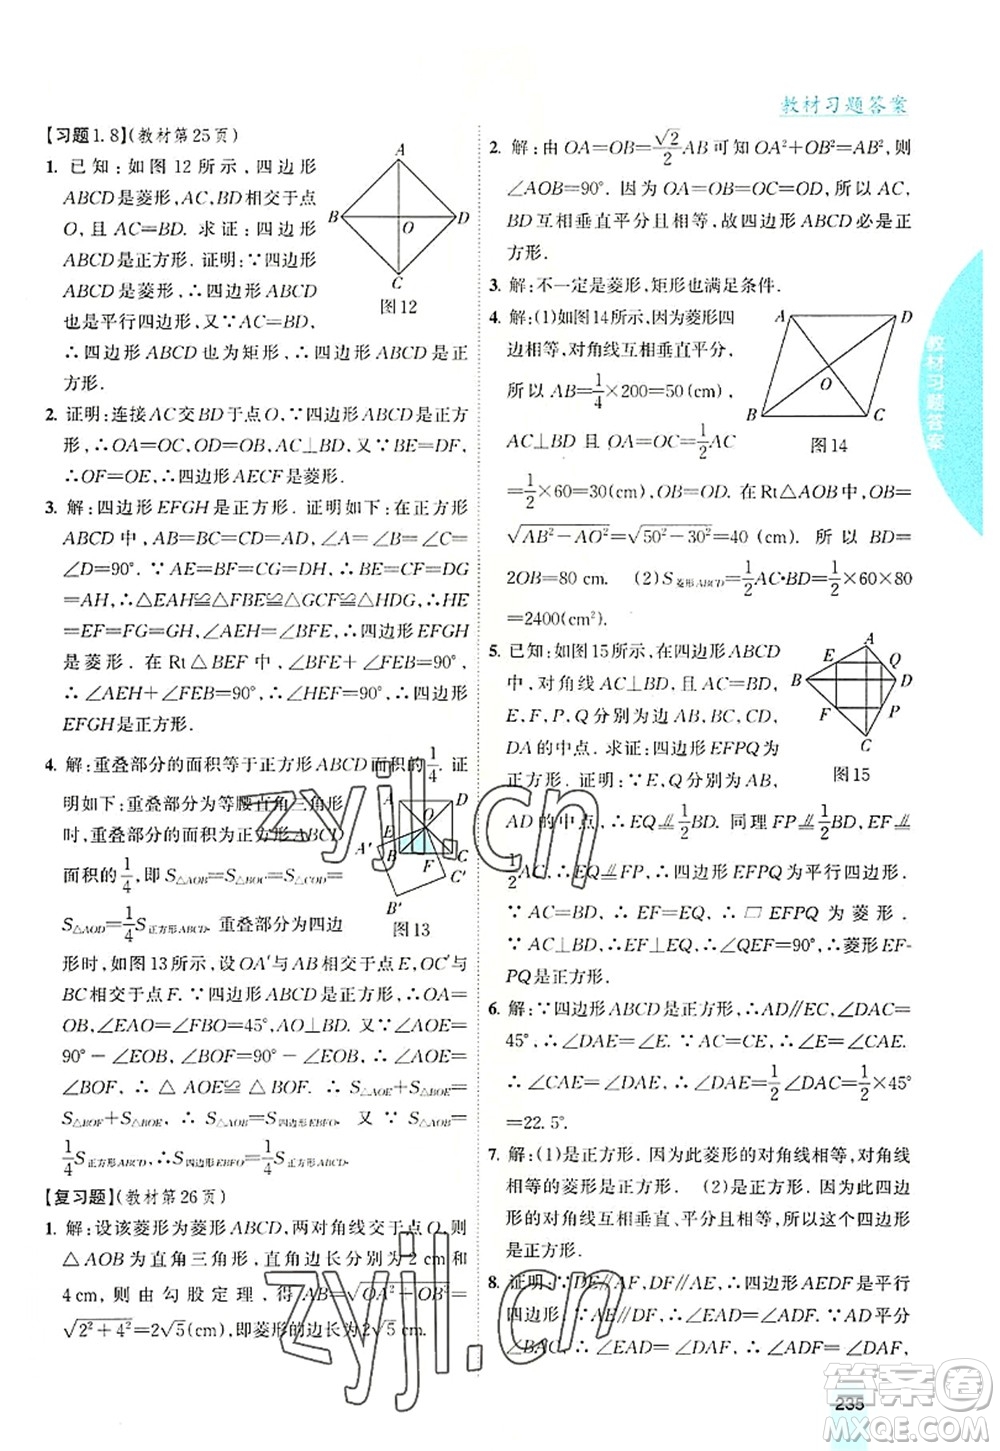 教材习题答案
【习题1.8】(教材第25页)
1. 已知:如图12所示,四边形
ABCD是菱形,AC,BD相交于点
O,且AC=BD. 求证:四边形
ABCD是正方形. 证明:∵四边形
ABCD是菱形,∴四边形ABCD
也是平行四边形,又∵AC=BD,
∴四边形ABCD也为矩形,∴四边形ABCD是正
方形.
A
B
D
O
C
图12
2. 证明:连接AC交BD于点O,∵四边形ABCD是正方
形,∴OA=OC,OB=OD,AC⊥BD,又∵BE=DF,
∴OF=OE,∴四边形AECF是菱形.
3. 解:四边形EFGH是正方形. 证明如下:在正方形
ABCD中,AB=BC=CD=DA,∠A=∠B=∠C=
∠D=90°. ∵AE=BE=BF=CF=CG=DG=DH
=AH,∴△EAH≌△EBF≌△GCF≌△HDG,∴HE
=EF=FG=GH,∠AEH=∠BFE,∴四边形EFGH
是菱形. 在Rt△BEF中,∠BFE+∠FEB=90°,
∴∠AEH+∠FEB=90°,∴∠HEF=90°,∴四边形
EFGH是正方形.
4. 解:重叠部分的面积等于正方形ABCD面积的1/4. 证
明如下:重叠部分为等腰直角三角形
时,重叠部分的面积为正方形ABCD
面积的1/4,即S△AOB=S△BOC=S△COD=
S△AOD=1/4S正方形ABCD. 重叠部分为四边
形时,如图13所示,设OA′与AB相交于点E,OC′与
BC相交于点F. ∵四边形ABCD是正方形,∴OA=
OB,∠EAO=∠FBO=45°,AO⊥BD. 又∵∠AOE=
90°-∠EOB,∠BOF=90°-∠EOB,∴∠AOE=
∠BOF,∴△AOE≌△BOF,∴S△AOE+S△BOE=
S△BOF+S△BOE,∴S△AOB=S四边形EBFO. 又∵S△AOB=
1/4S正方形ABCD,∴S四边形EBFO=1/4S正方形ABCD.
A
D
O
E
A′
B
F
C
C′
B′
图13
【复习题】(教材第26页)
1. 解:设该菱形为菱形ABCD,两对角线交于点O,则
△AOB为直角三角形,直角边长分别为2 cm和
4 cm,所以由勾股定理,得AB=√(OA²+OB²)=
√(2²+4²)=2√5(cm),即菱形的边长为2√5 cm.
2. 解:由OA=OB=√2/2AB可知OA²+OB²=AB²,则
∠AOB=90°. 因为OA=OB=OC=OD,所以AC,
BD互相垂直平分且相等,故四边形ABCD必是正
方形.
3. 解:不一定是菱形,矩形也满足条件.
4. 解:(1)如图14所示,因为菱形四
边相等,对角线互相垂直平分,
所以AB=1/4×200=50(cm),
AC⊥BD且OA=OC=1/2AC
=1/2×60=30(cm),OB=OD. 在Rt△AOB中,OB=
√(AB²-AO²)=√(50²-30²)=40(cm). 所以BD=
2OB=80 cm. (2)S菱形ABCD=1/2AC·BD=1/2×60×80
=2400(cm²).
A
D
O
B
C
图14
5. 已知:如图15所示,在四边形ABCD
中,对角线AC=BD,AC⊥BD,
E,F,P,Q分别为边AB,BC,CD,
DA的中点. 求证:四边形EFPQ为
正方形. 证明:∵E,Q分别为AB,
AD的中点,∴EQ⫽1/2BD. 同理FP⫽1/2BD,EF⫽
1/2AC,∴EQ⫽FP,∴四边形EFPQ为平行四边形.
∵AC=BD,∴EF=EQ,∴▱EFPQ为菱形.
∵AC⊥BD,∴EF⊥EQ,∴∠QEF=90°,∴菱形EF-
PQ是正方形.
A
E
Q
B
D
F
P
C
图15
6. 解:∵四边形ABCD是正方形,∴AD∥EC,∠DAC=
45°,∴∠DAF=∠E. ∵AC=CE,∴∠CAF=∠E.
∴∠CAF=∠DAF,∴∠E=1/2∠DAC=1/2×45°
=22.5°.
7. 解:(1)是正方形. 因为此菱形的对角线相等,对角线相
等的菱形是正方形. (2)是正方形. 因为此四边
形的对角线互相垂直、平分且相等,所以这个四
边形是正方形.
8. 证明:∵DE∥AF,DF∥AE,∴四边形AEDF是平行
四边形,∴AE=DF,∠EAD=∠ADF. ∵AD平分
∠BAC,∴∠EAD=∠DAF,∴∠DAF=∠ADF,
教材习题答案
235
zyjl.cn
zyjl.cn
答案圈
MXQE.COM